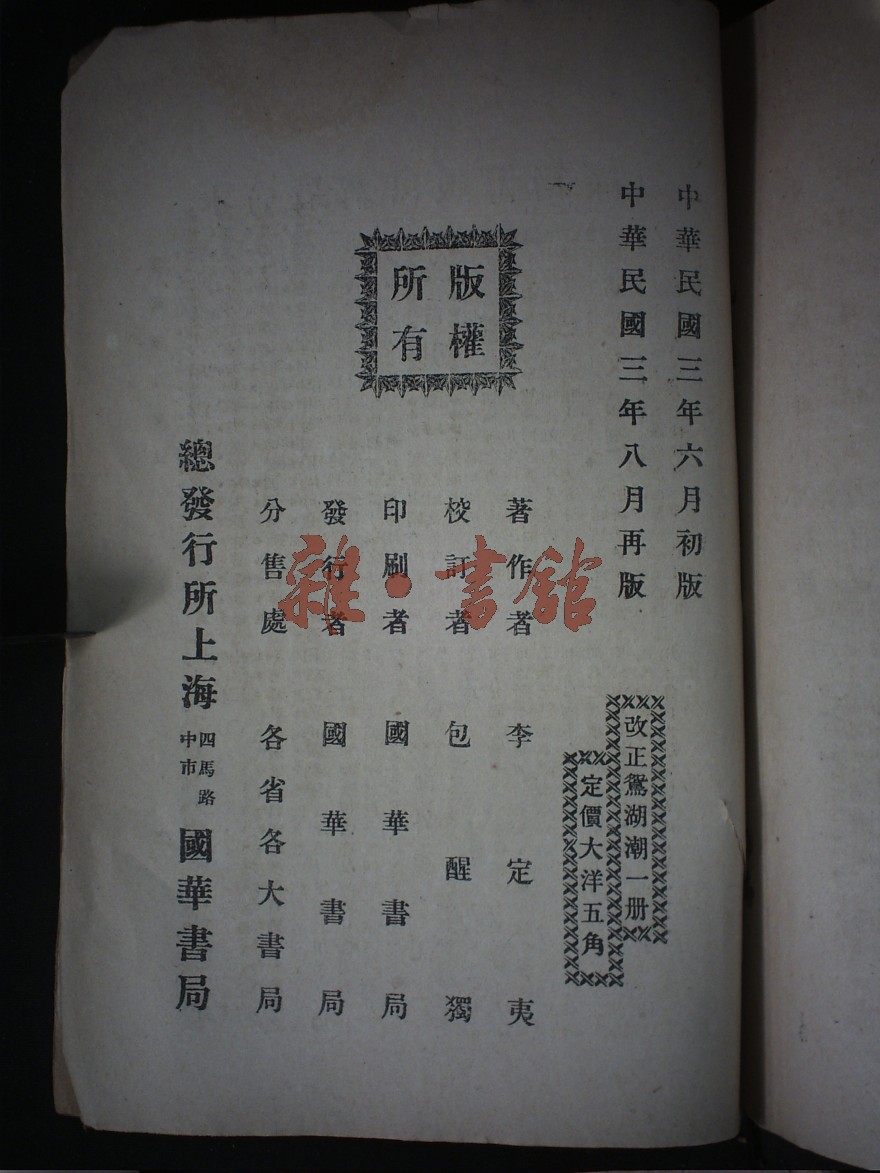 中華民國三年六月初版
中華民國三年八月再版
改正鴛湖潮一册
定價大洋五角
版權
所有
著作者 李定夷
校訂者 包醒獨
印刷者 國華書局
發行者 國華書局
分售處 各省各大書局
總發行所上海四馬路中市國華書局
雜·書館